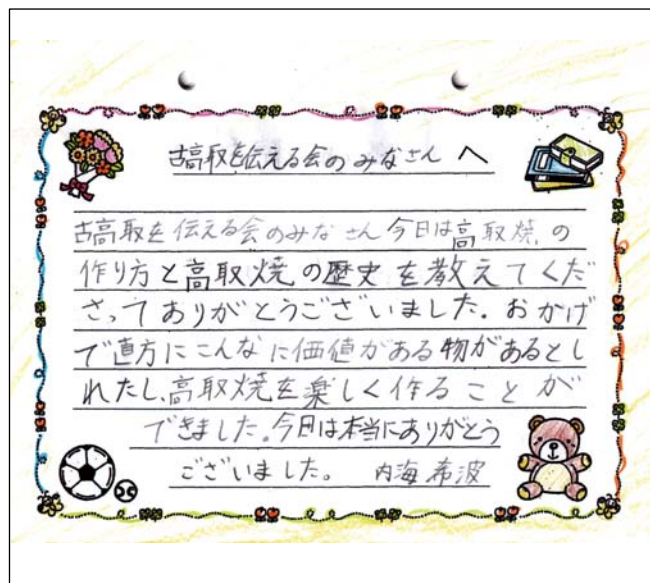 古高取を伝える会のみなさんへ
古高取を伝える会のみなさん今日は高取焼の
作り方と高取焼の歴史を教えてくだ
さってありがとうございました。おかげ
で直方にこんなに価値がある物があるとし
れたし、高取焼を楽しく作ることが
できました。今日は本当にありがとう
ございました。 内海希波